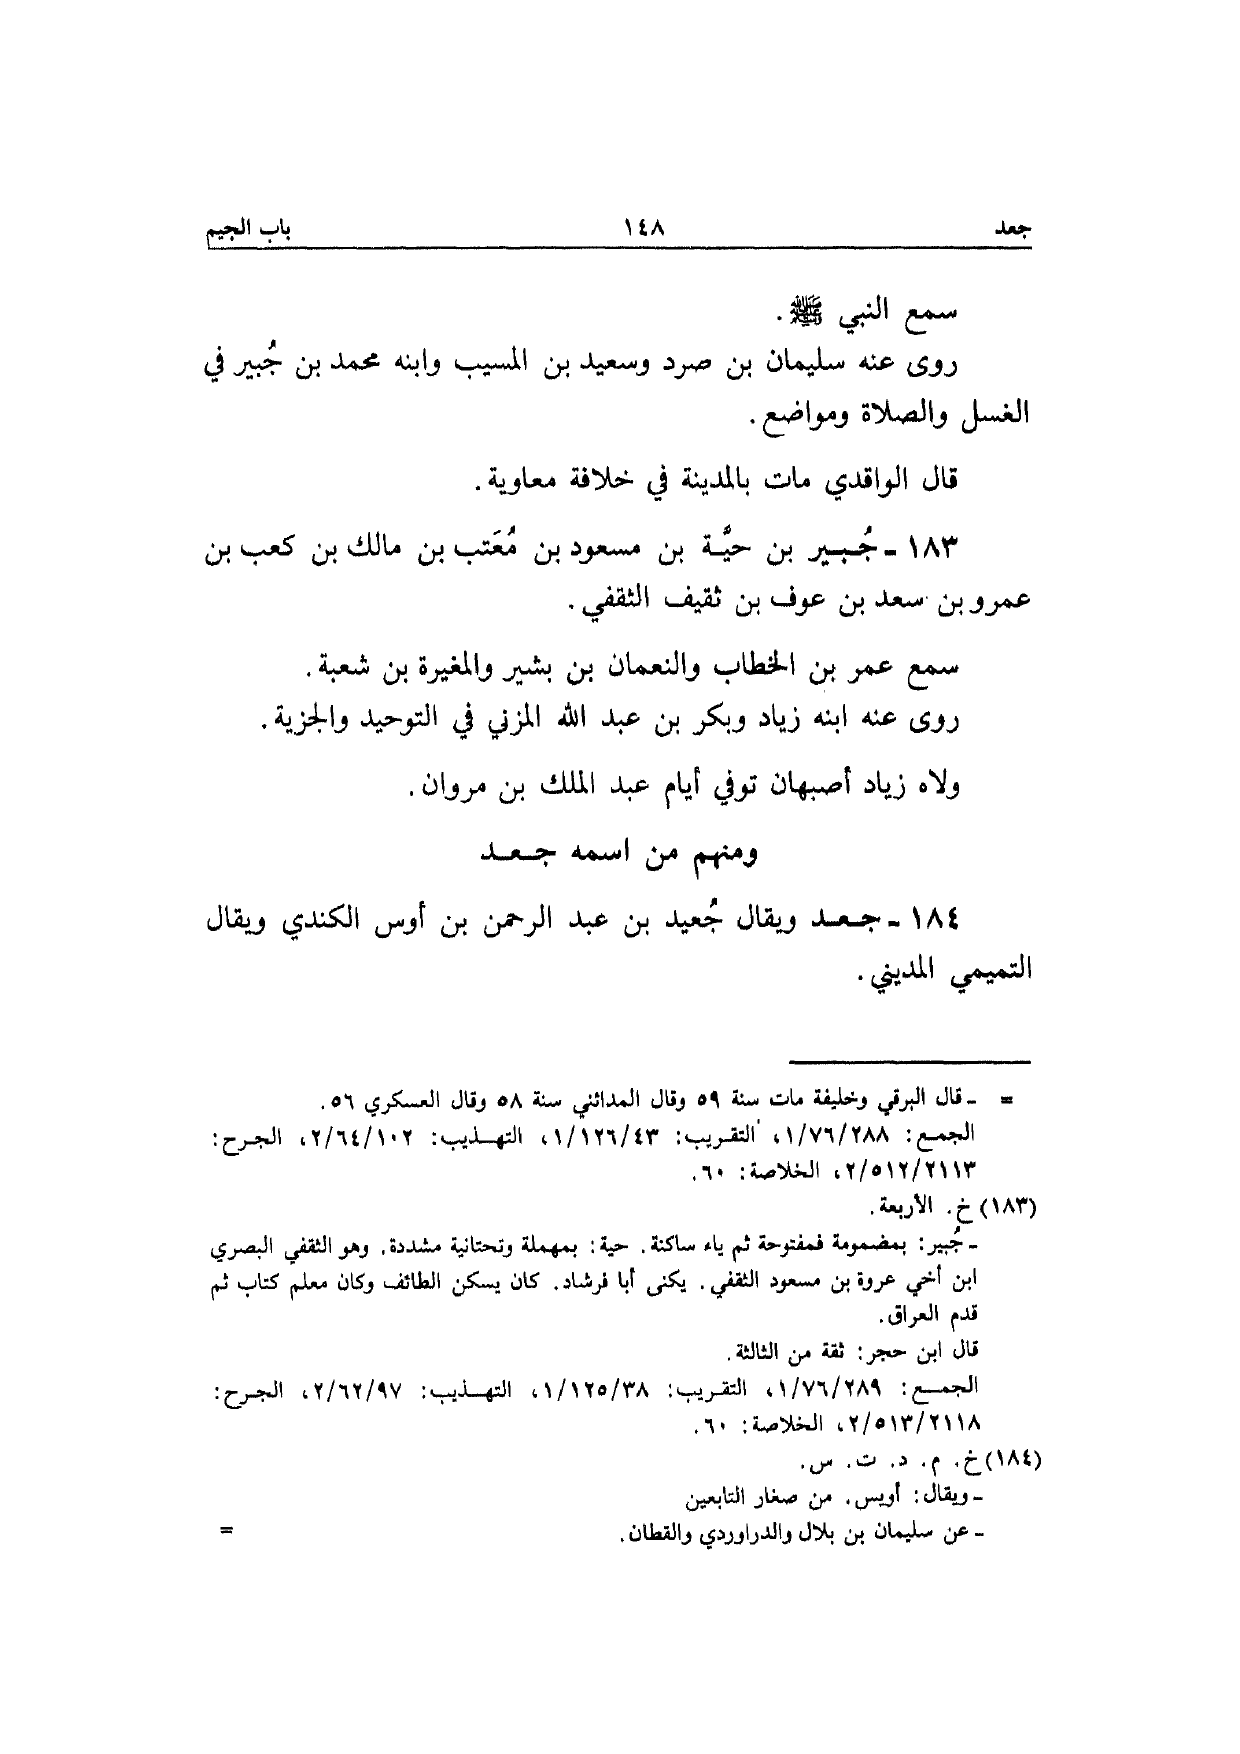 جعد ١٤٨ باب الجيم
سمع النبي ﷺ .
روى عنه سليمان بن صرد وسعيد بن المسيب وابنه محمد بن جُبير في
الغسل والصلاة ومواضع .
قال الواقدي مات بالمدينة في خلافة معاوية .
١٨٣ - جُبـير بن حيَّـة بن مسعود بن مُعَتب بن مالك بن كعب بن
عمرو بن سعد بن عوف بن ثقيف الثقفي .
سمع عمر بن الخطاب والنعمان بن بشير والمغيرة بن شعبة .
روى عنه ابنه زياد وبكر بن عبد الله المزني في التوحيد والجزية .
ولاه زياد أصبهان توفي أيام عبد الملك بن مروان .
ومنهم من اسمه جـعـد
١٨٤ - جـعـد ويقال جُعيد بن عبد الرحمن بن أوس الكندي ويقال
التميمي المديني .
= - قال البرقي وخليفة مات سنة ٥٩ وقال المدائني سنة ٥٨ وقال العسكري ٥٦ .
الجمع : ١/٧٦/٢٨٨ ، التقـريب : ١/١٢٦/٤٣ ، التهـذيب : ٢/٦٤/١٠٢ ، الجـرح :
٢/٥١٢/٢١١٣ ، الخلاصة : ٦٠ .
(١٨٣) خ . الأربعة .
- جُبير : بمضمومة فمفتوحة ثم ياء ساكنة . حية : بمهملة وتحتانية مشددة . وهو الثقفي البصري
ابن أخي عروة بن مسعود الثقفي . يكنى أبا فرشاد . كان يسكن الطائف وكان معلم كتاب ثم
قدم العراق .
قال ابن حجر : ثقة من الثالثة .
الجمـع : ١/٧٦/٢٨٩ ، التقـريب : ١/١٢٥/٣٨ ، التهـذيب : ٢/٦٢/٩٧ ، الجـرح :
٢/٥١٣/٢١١٨ ، الخلاصة : ٦٠ .
(١٨٤) خ . م . د . ت . س .
- ويقال : أويس . من صغار التابعين
- عن سليمان بن بلال والدراوردي والقطان . =